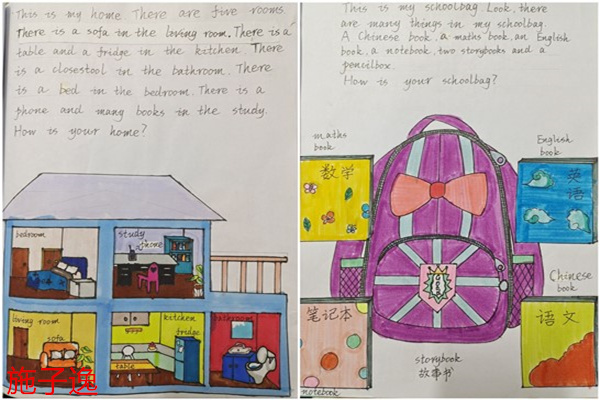 This is my home. There are five rooms.
There is a sofa in the living room. There is a
table and a fridge in the kitchen. There
is a closestool in the bathroom. There
is a bed in the bedroom. There is a
phone and many books in the study.
How is your home?
bedroom
study
phone
living room
sofa
kitchen
fridge
table
bathroom
施子逸
This is my schoolbag. Look, there
are many things in my schoolbag.
A Chinese book, a maths book, an English
book, a notebook, two storybooks and a
pencilbox.
How is your schoolbag?
maths
book
数学
English
book
英语
Chinese
book
语文
笔记本
notebook
storybook
故事书